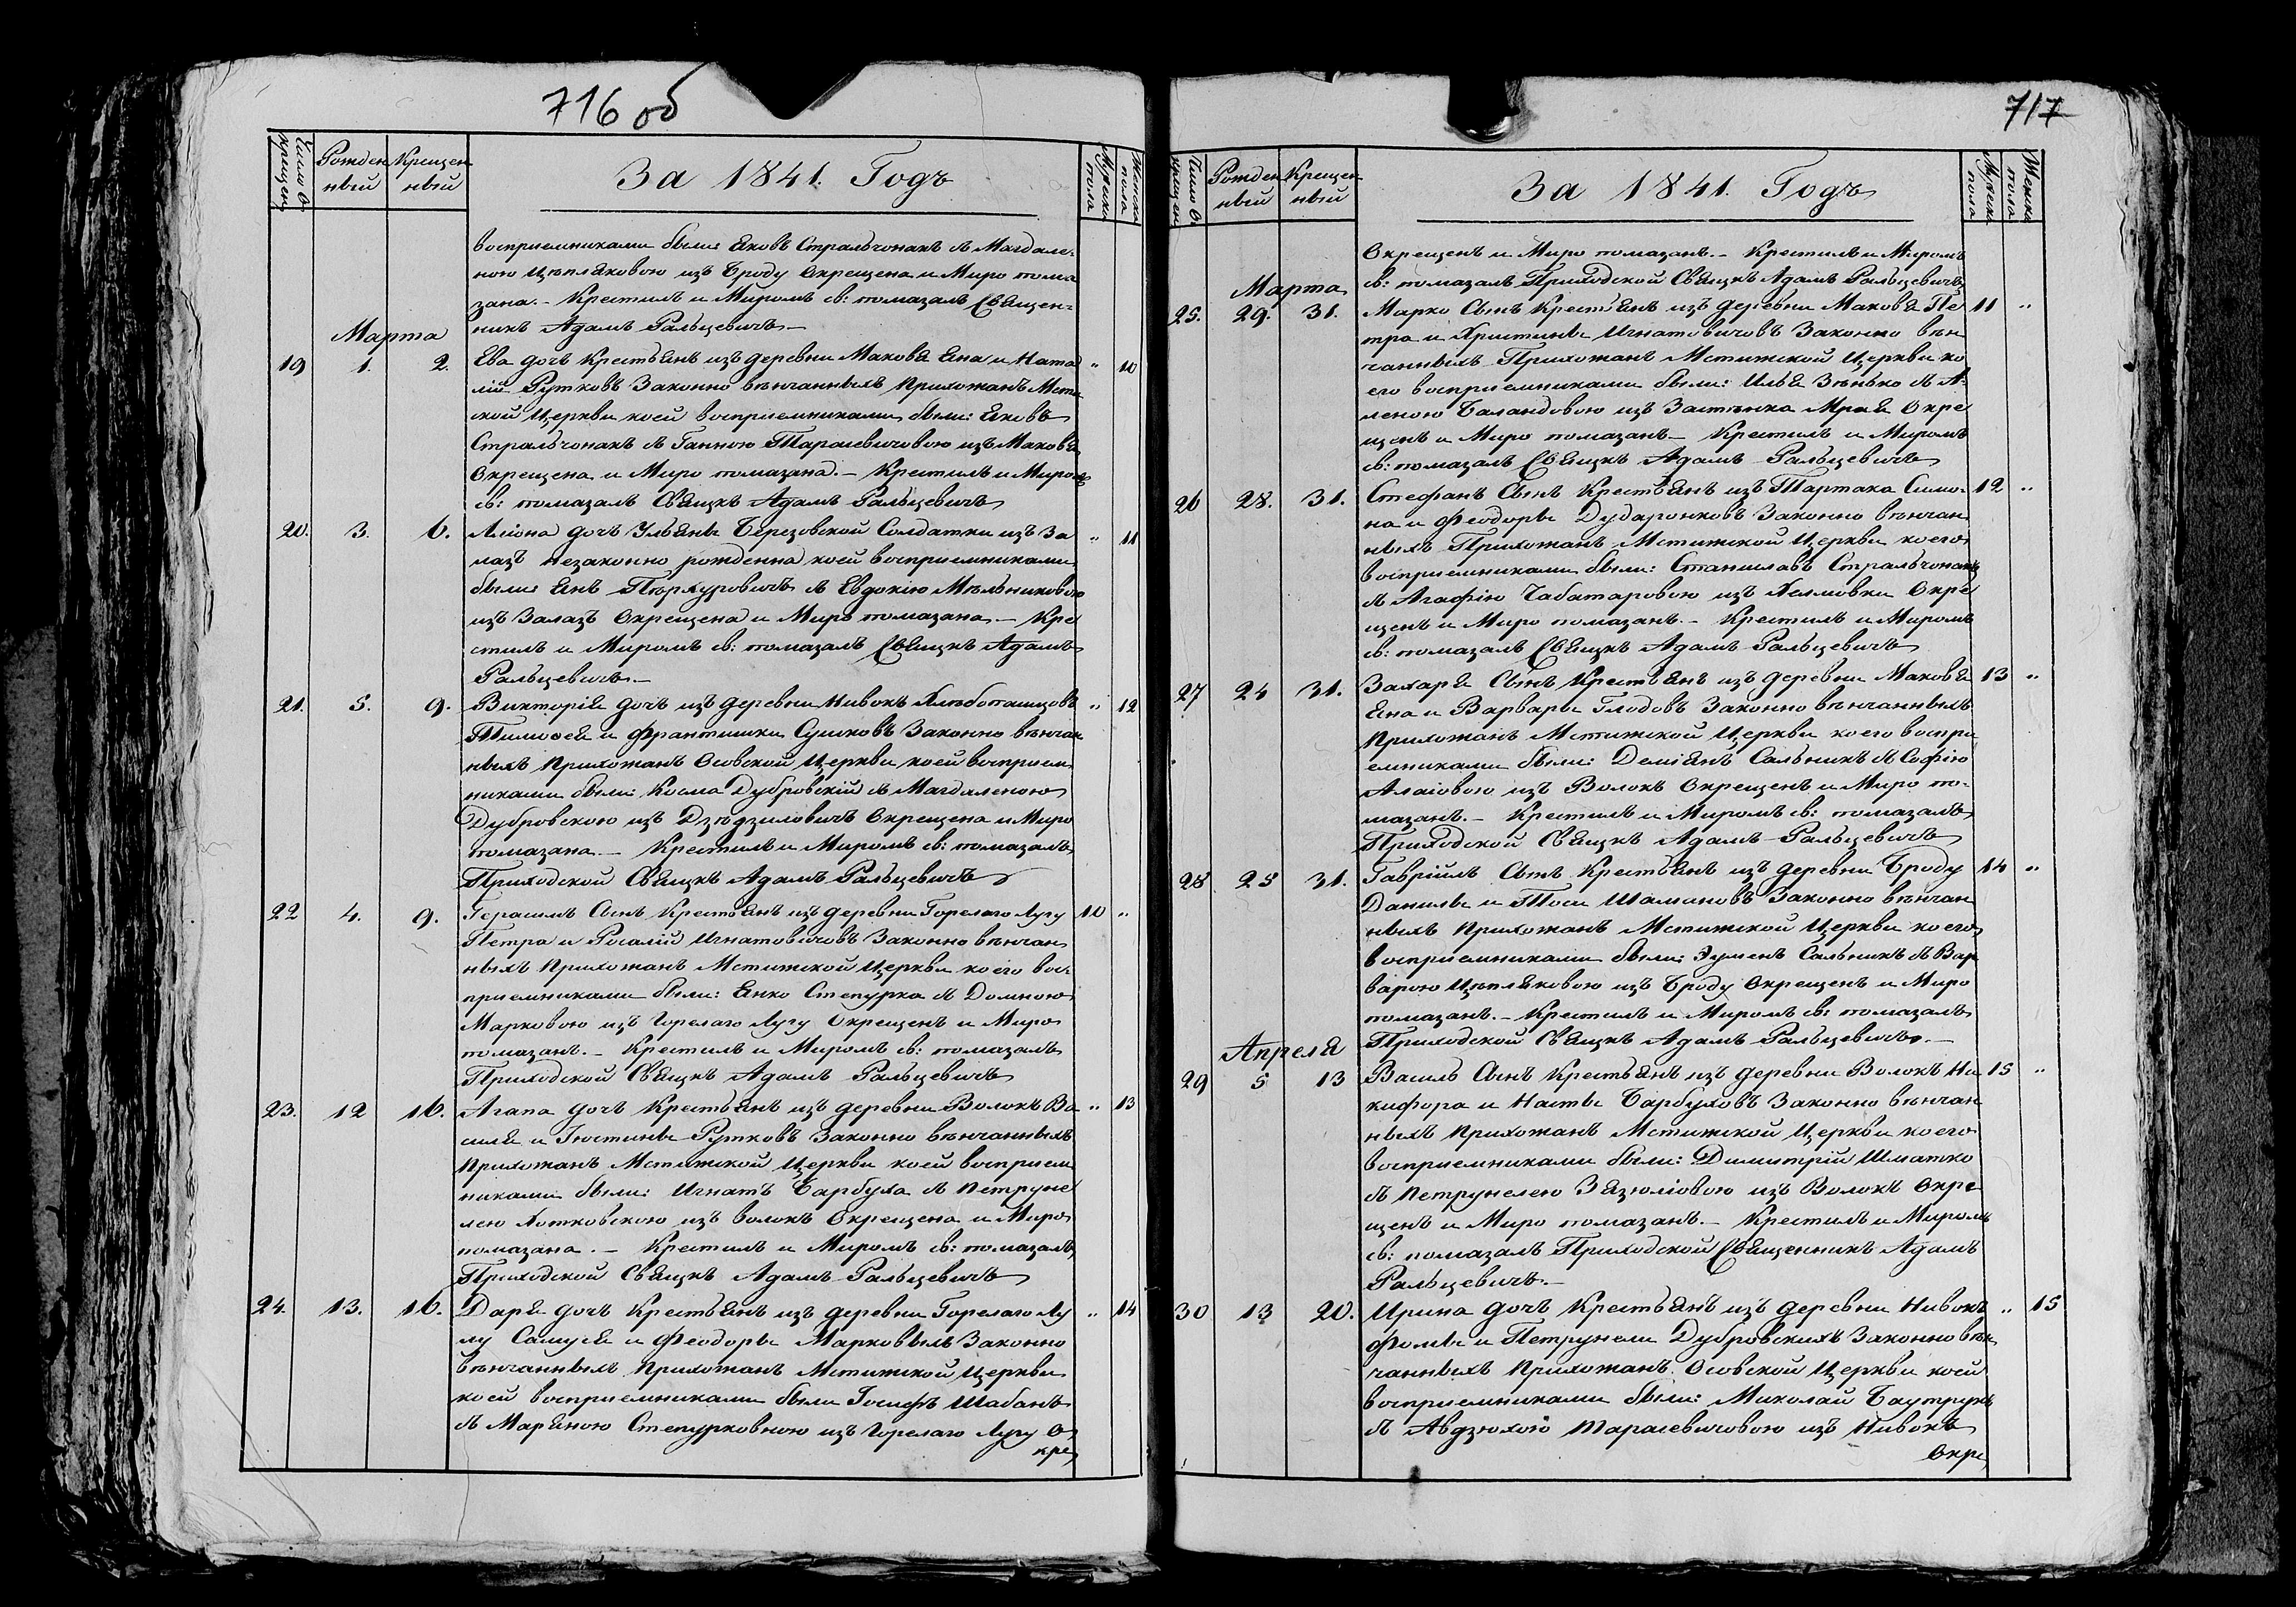 716 об
Число о крещен
Рожден ный
Крещен ный
За 1841. Годъ
Мужеска пола
Женска пола
восприемниками были: Яковъ Стральчонакъ съ Магдале-
ною Цепляковою изъ Броду Окрещена и Миро пома
зана. - Крестилъ и Миромъ св: помазалъ Священ-
никъ Адамъ Ральцевичъ -
Марта
19 1. 2. Ева дочъ Крестьянъ изъ деревни Маковя Яна и Ната „ 10
лiи Рутковъ Законно вѣнчанныхъ Прихожанъ Мсти
ской Церкви коей восприемниками были: Яковъ
Стральчонакъ съ Ганною Тарасевичовою изъ Маковя
Окрещена и Миро помазана. - Крестилъ и Миромъ
св: помазалъ Свящкъ Адамъ Ральцевичъ
20. 3. 6. Алiона дочъ Ульяны Березовской Солдатки изъ За „ 11
лазъ незаконно рожденна коей восприемниками
были Янъ Пархуровичъ съ Евдокiю Мѣльниковою
изъ Залазъ Окрещена и Миро помазана - Кре
стилъ и Миромъ св: помазалъ Свящкъ Адамъ
Ральцевичъ. -
21. 5. 9. Викторiя дочъ изъ деревни Нивокъ Хлѣбопашцовъ „ 12
Тимофея и Франтишки Сушковъ Законно вѣнчан
ныхъ Прихожанъ Осовской Церкви коей восприем
никами были: Косма Дубровскiй съ Магдаленою
Дубровскою изъ Дзѣдзиловичъ Окрещена и Миро
помазана. - Крестилъ и Миромъ св: помазалъ
Приходской Свящкъ Адамъ Ральцевичъ
22 4. 9. Герасимъ Сынъ Крестьянъ изъ деревни Горелаго Лугу 10 „
Петра и Розалiи Игнатовичовъ Законно вѣнчан
ныхъ Прихожанъ Мстижской Церкви коего вос
приемниками были: Янко Степурка съ Домною
Марковою изъ Горелаго Лугу Окрещенъ и Миро
помазанъ. - Крестилъ и Миромъ св: помазалъ
Приходской Свящкъ Адамъ Ральцевичъ
23. 12 16. Агапа дочъ Крестьянъ изъ деревни Волокъ Ва „ 13
силя и Iюстины Рутковъ Законно вѣнчанныхъ
Прихожанъ Мстижской Церкви коей восприем
никами были: Игнатъ Барбуха съ Петруне
лею Хотковскою изъ Волокъ Окрещена и Миро
помазана. - Крестилъ и Миромъ св: помазалъ
Приходской Свящкъ Адамъ Ральцевичъ
24. 13. 16. Даря дочъ Крестьянъ изъ деревни Горелаго Лу „ 14
лу Самуся и Феодоры Марковыхъ Законно
вѣнчанныхъ Прихожанъ Мстижской Церкви
коей восприемниками были Iосифъ Шабанъ
съ Маряною Степурковною изъ Горелаго Лугу О
кре
717
Число о крещен
Рожден ный
Крещен ный
За 1841. Годъ
Мужеска пола
Женска пола
Окрещенъ и Миро помазанъ. - Крестилъ и Миромъ
св: помазалъ Приходской Свящкъ Адамъ Ральцевичъ
Марта
25. 29. 31. Марко Сынъ Крестьянъ изъ деревни Маковя Пе 11 „
тра и Христины Игнатовичовъ Законно вѣн
чанныхъ Прихожанъ Мстижской Церкви ко
его восприемниками были: Илья Зѣнько съ А-
леною Баландовою изъ Застѣнка Мрая Окре
щенъ и Миро помазанъ - Крестилъ и Миромъ
св: помазалъ Свящкъ Адамъ Ральцевичъ
26 28. 31. Стефанъ Сынъ Крестьянъ изъ Тартака Симо- 12 „
на и Феодоры Дударонковъ Законно вѣнчан
ныхъ Прихожанъ Мстижской Церкви коего
восприемниками были: Станиславъ Стральчонакъ
съ Агафiю Чабатаровою изъ Хелмовки Окре
щенъ и Миро помазанъ. - Крестилъ и Миромъ
св: помазалъ Свящкъ Адамъ Ральцевичъ
27 24 31. Захаря Сынъ Крестьянъ изъ деревни Маковя 13 „
Яна и Варвары Глодовъ Законно вѣнчанныхъ
Прихожанъ Мстижской Церкви коего воспри
емниками были: Демiянъ Сальникъ съ Софiю
Алаiовою изъ Волокъ Окрещенъ и Миро по-
мазанъ. - Крестилъ и Миромъ св: помазалъ
Приходской Свящкъ Адамъ Ральцевичъ
28 25 31. Гаврiилъ Сынъ Крестьянъ изъ деревни Броду 14 „
Данилы и Тоси Шамановъ Законно вѣнчан
ныхъ Прихожанъ Мстижской Церкви коего
восприемниками были: Румянъ Сальникъ съ Вар
варою Цѣпляковою изъ Броду Окрещенъ и Миро
помазанъ. - Крестилъ и Миромъ св: помазалъ
Приходской Свящкъ Адамъ Ральцевичъ. -
Апреля
29 5 13 Василь Сынъ Крестьянъ изъ деревни Волокъ Ни 15 „
кифора и Насты Барбуховъ Законно вѣнчан
ныхъ Прихожанъ Мстижской Церкви коего
восприемниками были: Димитрiй Шматко
съ Петрунелею Зязюлiовою изъ Волокъ Окре
щенъ и Миро помазанъ. - Крестилъ и Миромъ
св: помазалъ Приходской Священникъ Адамъ
Ральцевичъ. -
30 13 20. Ирина дочъ Крестьянъ изъ деревни Нивокъ „ 15
Фомы и Петрунели Дубровскихъ Законно вѣн
чанныхъ Прихожанъ Осовской Церкви коей
восприемниками были: Миколай Баутрукъ
съ Авдзюхою Тарасевичовою изъ Нивокъ
Окре